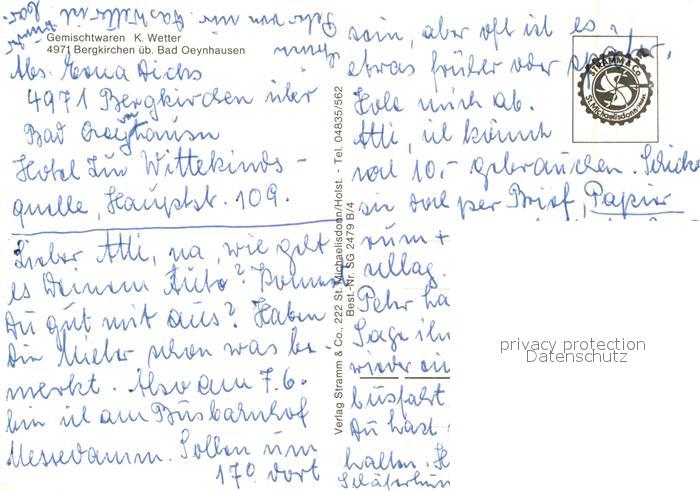 Gemischtwaren K. Wetter
4971 Bergkirchen üb. Bad Oeynhausen
Abs. Erna Dicks
4971 Bergkirchen über
Bad Oeynhausen
Hotel Zur Wittekinds-
quelle, Hauptstr. 109.
Lieber Atti, na, wie geht
es Deinem Auto? Kommst
Du gut mit aus? Haben
Die Mieter schon was be-
merkt. Also am 7.6.
bin ich am Busbahnhof
Messedamm. Sollen um
17⁰ dort
sein, aber oft ist es
etwas früher oder später.
Hole mich ab.
Atti, ich könnte
noch 10,- gebrauchen. Schicke
sie doch per Brief, Papier
rum +
Peter ha
Sage ihm
wieder ein
busfahrt
Du hast
halten.
Schäferhun
Verlag Stramm & Co., 222 St. Michaelisdonn/Holst. - Tel. 04835/562
Best.-Nr. SG 2479 B/4
STRAMM & CO.
St. Michaelisdonn/Holst.
privacy protection
Datenschutz